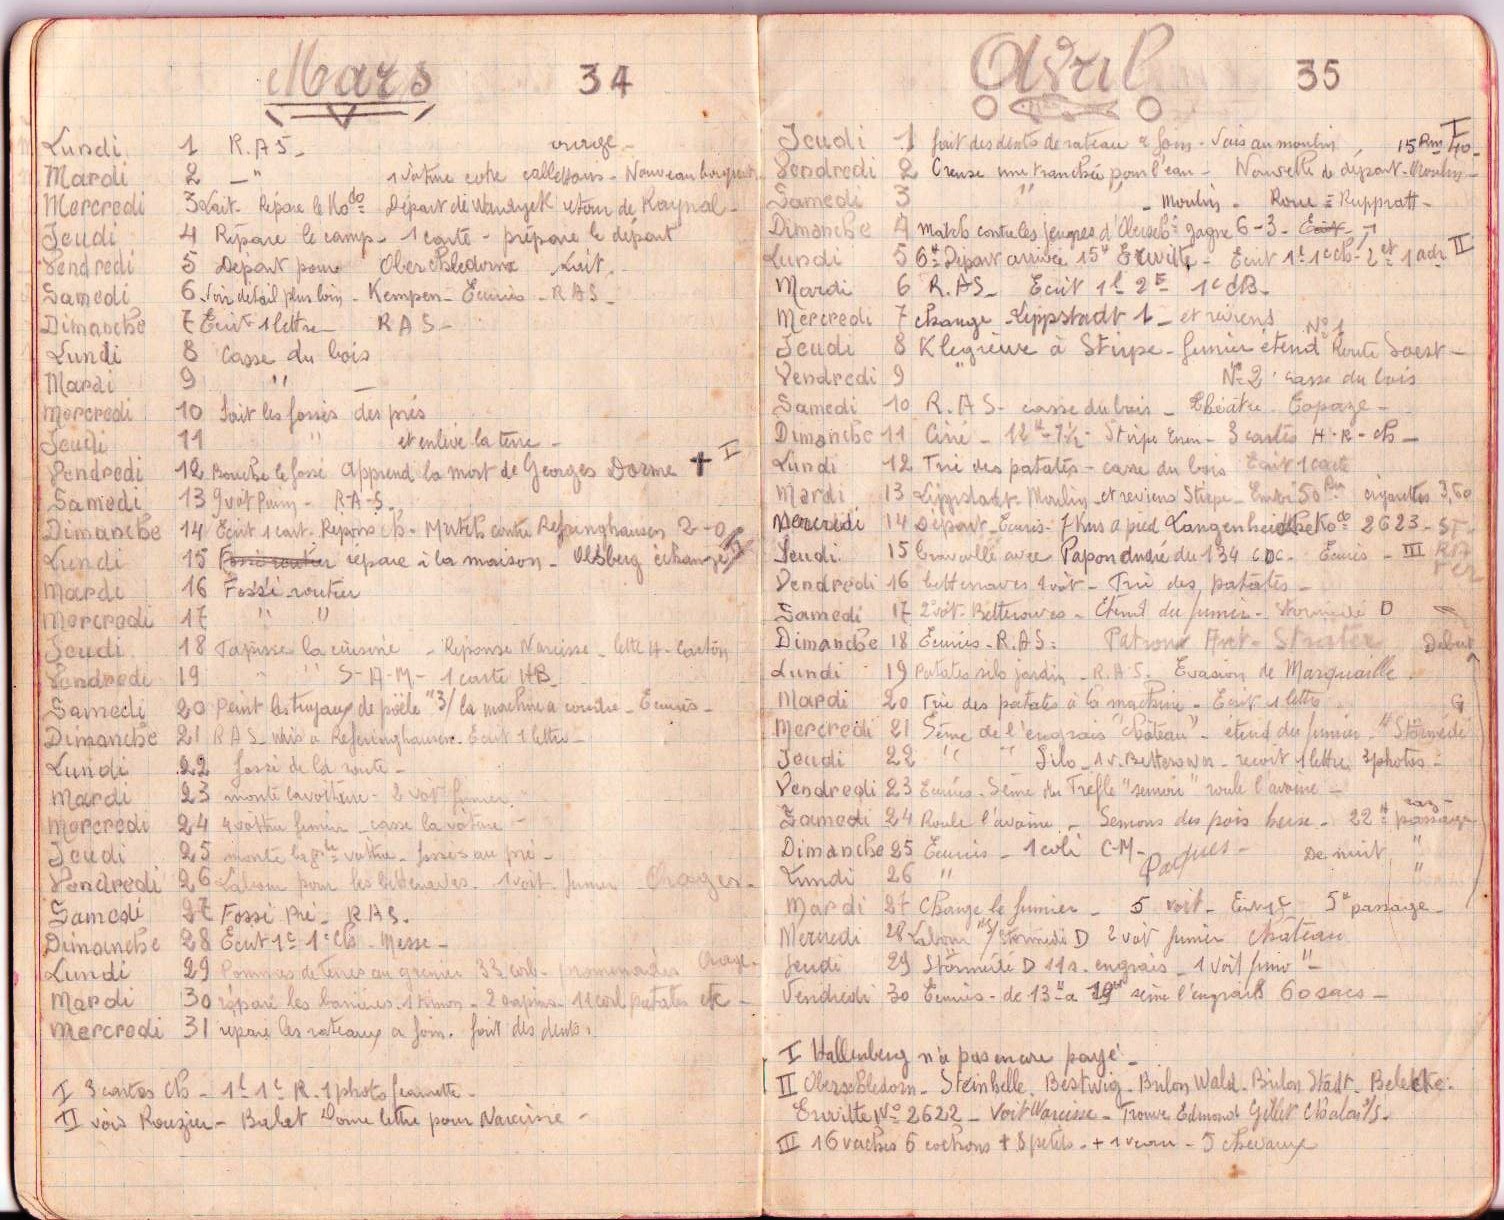 Mars 34
Lundi 1 R.A.S.
Mardi 2 - " 1 voiture cote
Mercredi 3 Lait. Répare le Kodo Départ de retour de Raynal -
Jeudi 4 Répare le camp - 1 carte - prépare le départ
Vendredi 5 Départ pour Lait.
Samedi 6 Voir détail plus loin - Kempen - Ecuries - R A S -
Dimanche 7 Ecrit 1 lettre - R A S -
Lundi 8 Casse du bois
Mardi 9 " —
Mercredi 10 Fait les fossés des prés
Jeudi 11 " et enlève la terre -
Vendredi 12 Bouche le fossé Apprend la mort de Georges Dorme + I
Samedi 13 R-A-S-
Dimanche 14 Ecrit 1 cart. Repons ch - Match contre Referinghausen 2-0
Lundi 15 répare à la maison - Olsberg échange II
Mardi 16 Fossé routier
Mercredi 17 " "
Jeudi 18 Tapisse la cuisine - Réponse Narcisse - lettre H - carton
Vendredi 19 " S-A-M- 1 carte HB
Samedi 20 Peint les tuyaux de poële "3/ la machine a coudre - Ecuries -
Dimanche 21 R A S - vais a Referinghausen. Ecrit 1 lettre -
Lundi 22 fossé de la route -
Mardi 23 monte la voiture - 2 voit fumier.
Mercredi 24 4 voitur fumier casse la voiture -
Jeudi 25 monte la voitur - fossés au pré -
Vendredi 26 Labour pour les betteraves. 1 voit. fumier Orages -
Samedi 27 Fossé Pré - R.A.S.
Dimanche 28 Ecrit 1l 1c ch - Messe -
Lundi 29 Pommes de terres au grenier 33 corb - promenades Orage -
Mardi 30 réparé les barrières. 1 timon - 2 sapins - 11 corb patates etc -
Mercredi 31 repare les rateaux a foin. fait des dents.
I 3 cartes ch - 1l 1c R. 1 photo Jeannette -
II vois Rouzier - Balat Donne lettre pour Narcisse -
Avril 35
Jeudi 1 fait des dents de rateau a foin - Vais au moulin 15 Rm 40 - I
Vendredi 2 Creuse une tranchée pour l'eau - Nouvelle de départ - Moulin -
Samedi 3 " - Moulin - Roue = Ruppratt -
Dimanche 4 Match contre les jeunes gagne 6-3 -
Lundi 5 6H Départ arrivée 15H Erwitte - Ecrit 1l 1c ch - II
Mardi 6 R.A.S - Ecrit 1l 2E 1c dB -
Mercredi 7 change Lippstadt 1 - et reviens
Jeudi 8 Klegreive à Stirpe - fumier étend No 1 Route Soest -
Vendredi 9 " No 2 casse du bois
Samedi 10 R.A.S - casse du bois - théâtre Topaze -
Dimanche 11 Ciné - Stirpe - 3 cartes H-R-ch -
Lundi 12 Trie des patates - casse du bois Ecrit 1 carte
Mardi 13 Lippstadt Moulin - et reviens Stirpe - 50 Rm cigarettes 3,50
Mercredi 14 Départ Ecuries - 7 kms a pied Langenheidhe Kodo 2623 - ST -
Jeudi 15 travaille avec Papon André du 134 CDC - Ecuries - III
Vendredi 16 betteraves 4 voit - Trie des patates -
Samedi 17 2 voit. Betteraves - Etend du fumier - Störmede D
Dimanche 18 Ecuries - R.A.S: Patrons Hort - Strater Début
Lundi 19 Patates silo jardin - R.A.S. Evasion de Marquaille
Mardi 20 Trie des patates à la machine - Ecrit 1 lettre G
Mercredi 21 Sème de l'engrais "Château" - étend du fumier - "Störmede"
Jeudi 22 " " Silo - 1 v. Betteraves - reçoit 1 lettre 3 photos -
Vendredi 23 Ecuries - Sème du Trèfle "semoir" roule l'avoine -
Samedi 24 Roule l'avoine - Semons des pois herse - 22H passage
Dimanche 25 Ecuries - 1 coli C-M - Paques - De nuit "
Lundi 26 " "
Mardi 27 Charge le fumier - 5 voit - 5e passage -
Mercredi 28 Labour Störmede D 2 voit fumier Château
Jeudi 29 Störmede D 11s. engrais - 1 voit fumier " -
Vendredi 30 Ecuries - de 13H a 19H sème l'engrais 60 sacs -
I Hallenberg n'a pas encore payé -
II Oberschledorn - Steinhelle, Bestwig - Brilon Wald - Brilon Stadt. Belecke.
Erwitte No 2622 - Voit Narcisse - Trouve Edmond Gillet Chalon s/S.
III 16 vaches 6 cochons + 8 petits - + 1 veau - 5 chevaux